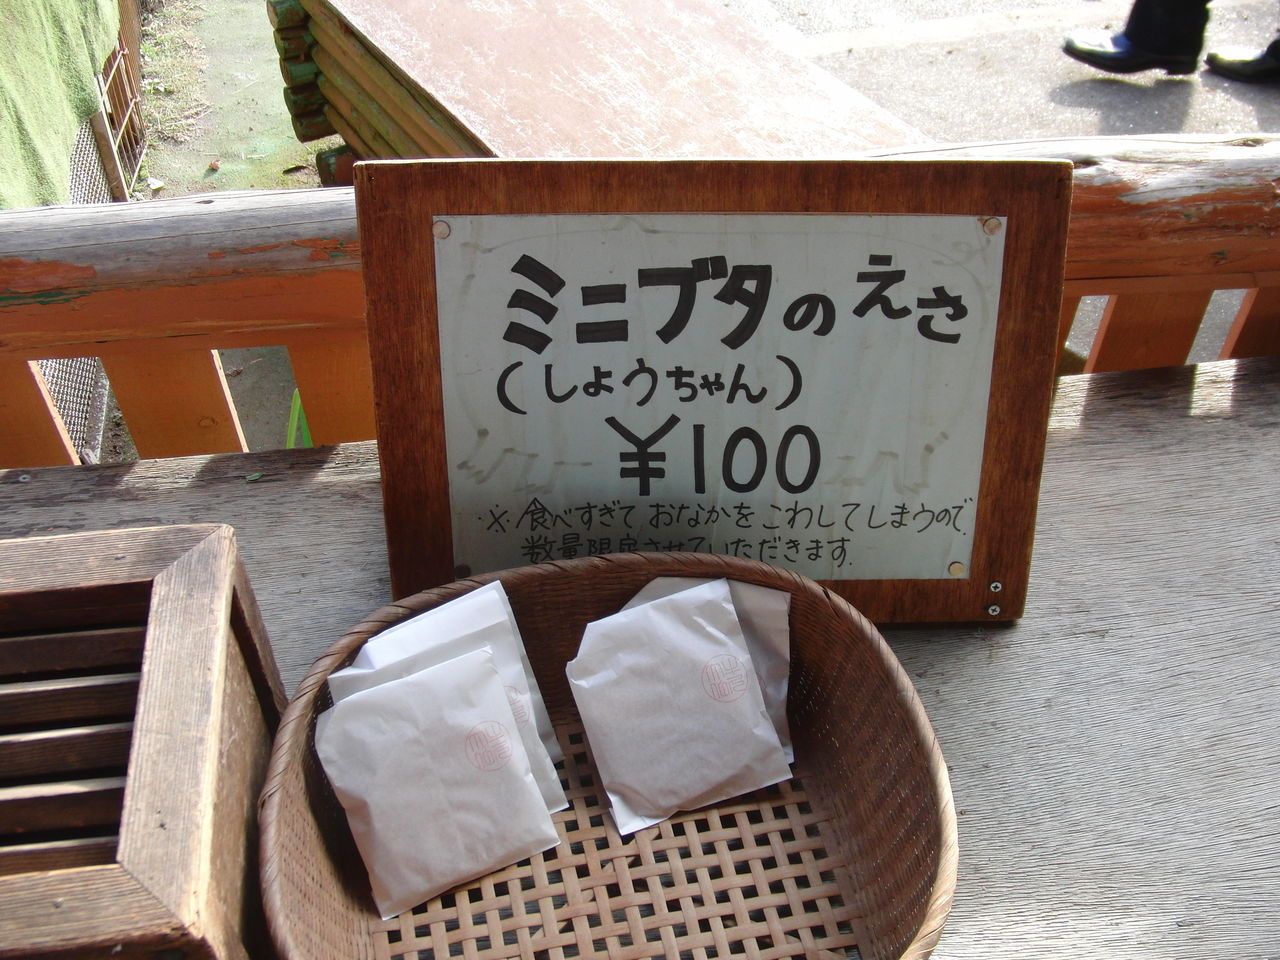 ミニブタのえさ
(しょうちゃん)
¥100
※食べすぎて おなかをこわしてしまうので、
数量限定させていただきます。